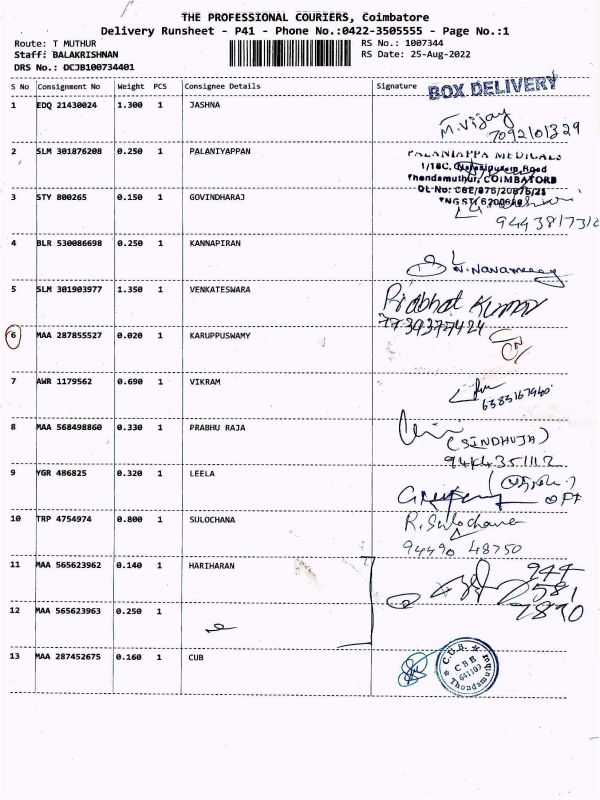 THE PROFESSIONAL COURIERS, Coimbatore
Delivery Runsheet - P41 - Phone No.:0422-3505555 - Page No.:1
Route: T MUTHUR RS No.: 1007344
Staff: BALAKRISHNAN RS Date: 25-Aug-2022
DRS No.: DCJB100734401
S No Consignment No Weight PCS Consignee Details Signature
BOX DELIVERY
1 EDQ 21430024 1.300 1 JASHNA
M.Vijay
7092101329
2 SLM 301876208 0.250 1 PALANIYAPPAN
PALANIAPPA MEDICALS
1/18C, Road
Thondamuthur, COIMBATORE
DL No: CBE/875/20B75/21
3 STY 800265 0.150 1 GOVINDHARAJ
4 BLR 530086698 0.250 1 KANNAPIRAN
5 SLM 301903977 1.350 1 VENKATESWARA
Prabhat Kumar
7739377424
6 MAA 287855527 0.020 1 KARUPPUSWAMY
7 AWR 1179562 0.690 1 VIKRAM
6383167940
8 MAA 568498860 0.330 1 PRABHU RAJA
(SINDHUJA)
9 YGR 486825 0.320 1 LEELA
10 TRP 4754974 0.800 1 SULOCHANA
R. Sulochana
94490 48750
11 MAA 565623962 0.140 1 HARIHARAN
944
2581
7870
12 MAA 565623963 0.250 1
13 MAA 287452675 0.160 1 CUB
C.U.B.
CBE
641109
Thondamuthur